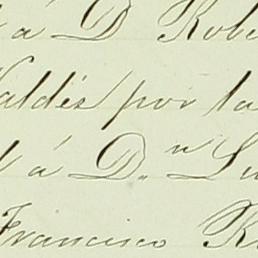 á D Robe
Valdés por la
á D.n Lu
Francisco R